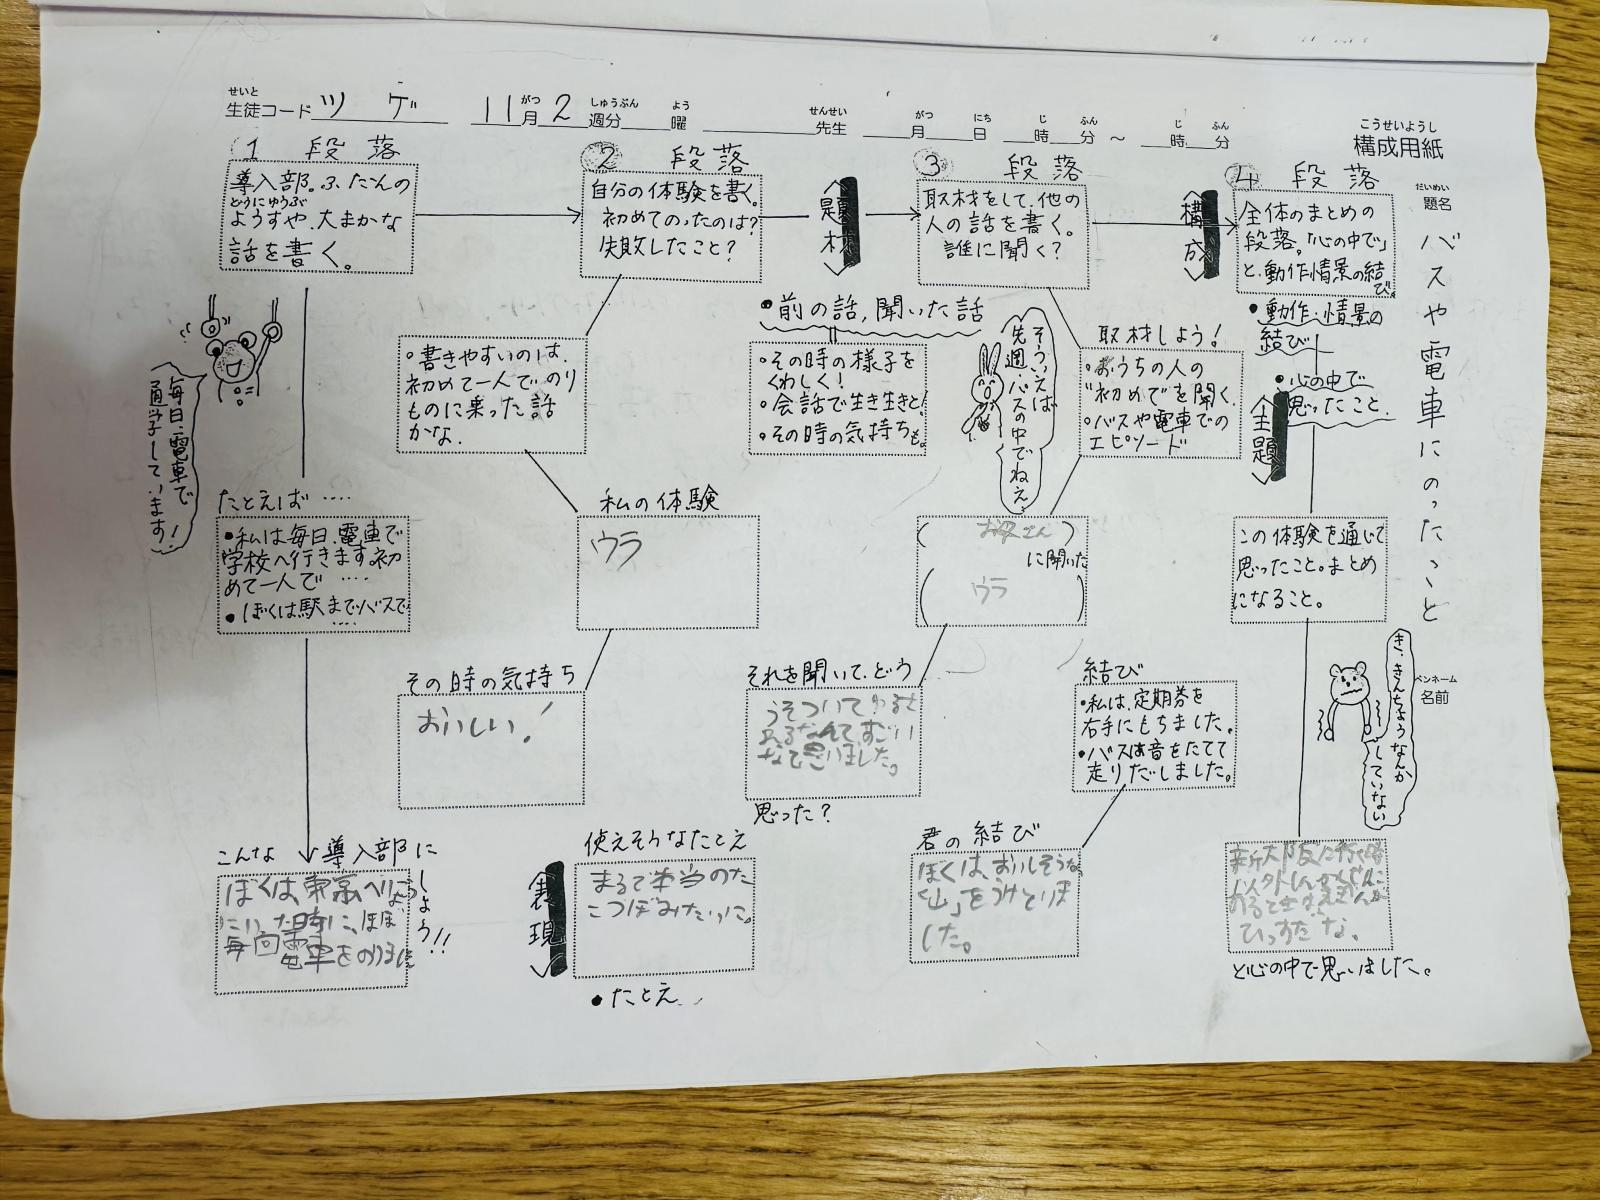 せいと
生徒コード ツゲ 11月がつ 2週分しゅうぶん 曜よう 先生せんせい 月がつ 日にち 時じ 分ふん ～ 時じ 分ふん
こうせいようし
構成用紙
だいめい
題名
バスや電車にのったこと
ペンネーム
名前
1 段落
導入部。ふだんの
どうにゅうぶ
ようすや、大まかな
話を書く。
毎日、電車で
通学しています!
たとえば ‥‥
・私は毎日、電車で
学校へ行きます。初
めて一人で ‥‥
・ぼくは駅までバスで
‥‥
こんな 導入部に
しよう!!
ぼくは、東京へ
にいった時に、ほぼ
毎回電車をのりま
2 段落
自分の体験を書く。
初めてのったのは?
失敗したこと?
・書きやすいのは、
初めて一人でのり
ものに乗った話
かな。
私の体験
ウラ
その時の気持ち
おいしい!
表現
使えそうなたとえ
まるで本当のた
こつぼみたいに。
・たとえ
題材
・前の話,聞いた話
・その時の様子を
くわしく!
・会話で生き生きと!
・その時の気持ちも。
3 段落
取材をして、他の
人の話を書く。
誰に聞く?
そういえば
先週、バスの中でねえ
取材しよう!
・おうちの人の
"初めて"を聞く。
・バスや電車での
エピソード
(お母さん)
に聞いた
(ウラ)
それを聞いて、どう
うそついて
るなんてすごい
なて思いました。
思った?
結び
・私は、定期券を
右手にもちました。
・バスは音をたてて
走りだしました。
君の結び
ぼくは、おいしそうな
「山」をうけとりま
した。
構成
4 段落
全体のまとめの
段落。「心の中で」
と、動作情景の結
び。
・動作・情景の
結び
・心の中で
思ったこと。
主題
この体験を通じて
思ったこと。まとめ
になること。
き、きんちょうなんか
していない
新大阪に行く時
以外しんかんせんに
のるときは
ひっすだな。
と心の中で思いました。